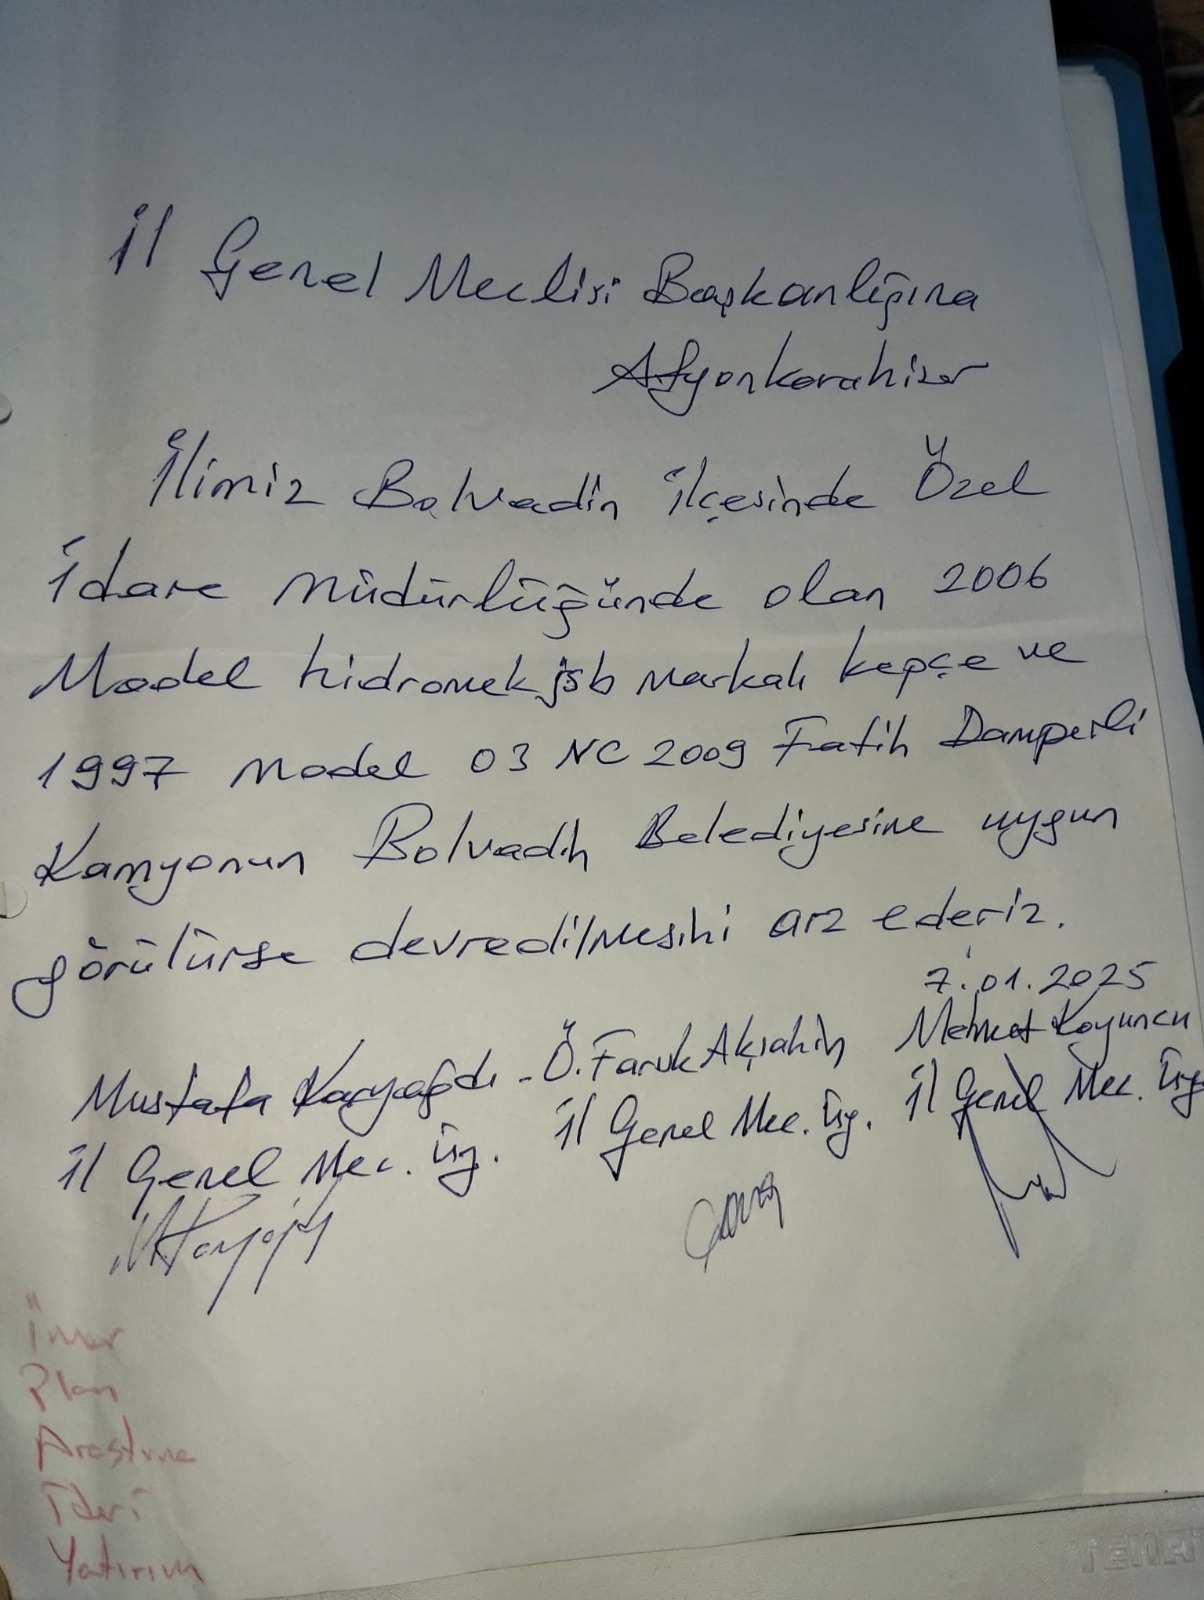 İl Genel Meclisi Başkanlığına
Afyonkarahisar
İlimiz Bolvadin ilçesinde Özel
İdare Müdürlüğünde olan 2006
Model hidromek jsb markalı kepçe ve
1997 model 03 NC 2009 Fatih Damperli
Kamyonun Bolvadin Belediyesine uygun
görülürse devredilmesini arz ederiz.
7.01.2025
Mustafa Karyağdı - Ö. Faruk Akşahin Mehmet Koyuncu
il Genel Mec. Üy. il Genel Mec. Üy. il Genel Mec. Üy
İmar
Plan
Araştırma
İdari
Yatırım